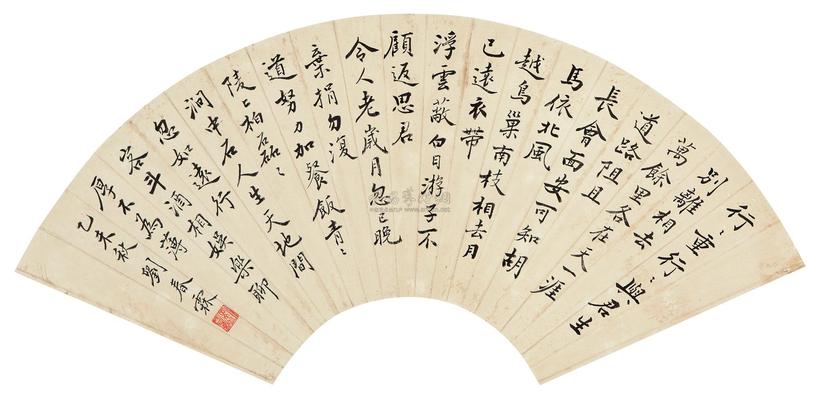 行〻重行〻與君生
別離相去
萬餘里各在天一涯
道路阻且
長會面安可知胡
馬依北風
越鳥巢南枝相去日
已遠衣帶
浮雲蔽白日游子不
顧返思君
令人老歲月忽已晚
棄捐勿復
道努力加餐飯青〻
陵上柏磊〻
澗中石人生天地間
忽如遠行
客斗酒相娛樂聊
厚不為薄
乙未秋劉春霖